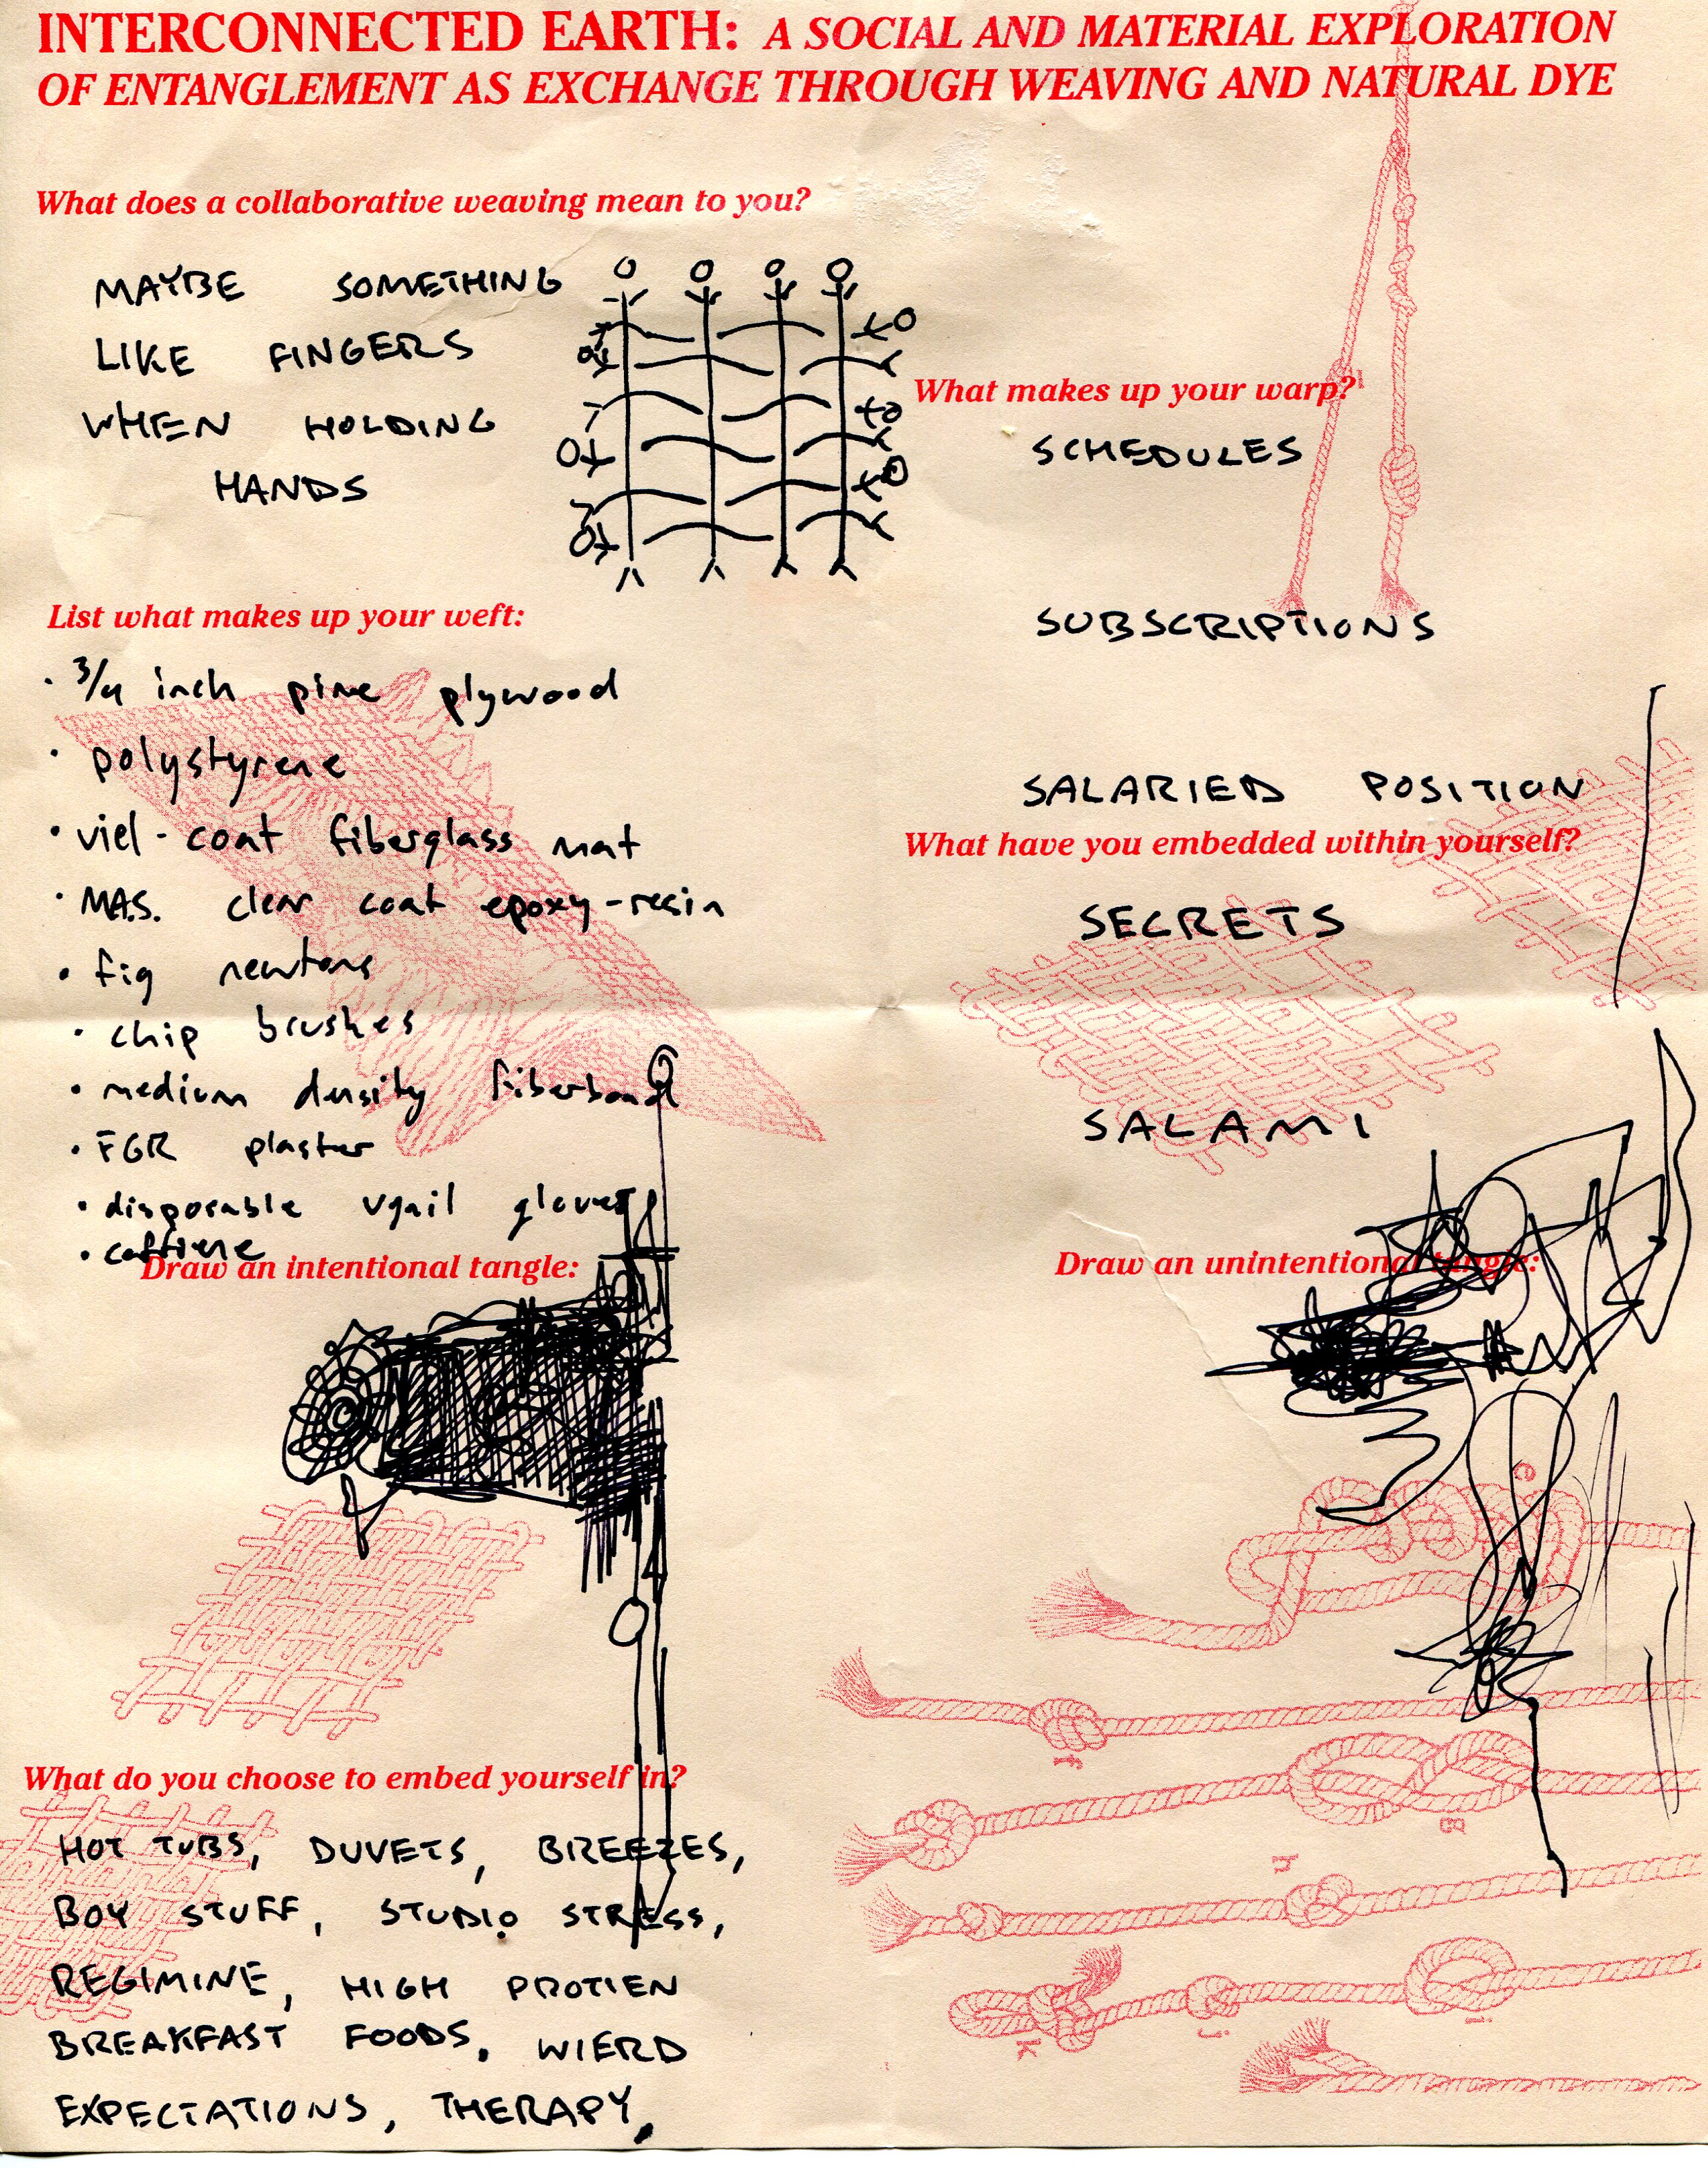 INTERCONNECTED EARTH: A SOCIAL AND MATERIAL EXPLORATION
OF ENTANGLEMENT AS EXCHANGE THROUGH WEAVING AND NATURAL DYE
What does a collaborative weaving mean to you?
MAYBE SOMETHING
LIKE FINGERS
WHEN HOLDING
HANDS
What makes up your warp?
SCHEDULES
SUBSCRIPTIONS
SALARIED POSITION
List what makes up your weft:
· 3/4 inch pine plywood
· polystyrene
· viel-coat fiberglass mat
· MA.S. clear coat epoxy-resin
· fig newtons
· chip brushes
· medium density fiberboard
· FGR plaster
· disposable gloves
· caffiene
What have you embedded within yourself?
SECRETS
SALAMI
Draw an intentional tangle:
Draw an unintentional tangle:
e
f
g
h
i
j
k
What do you choose to embed yourself in?
HOT TUBS, DUVETS, BREEZES,
BOY STUFF, STUDIO STRESS,
REGIMINE, HIGH PROTIEN
BREAKFAST FOODS, WIERD
EXPECTATIONS, THERAPY,